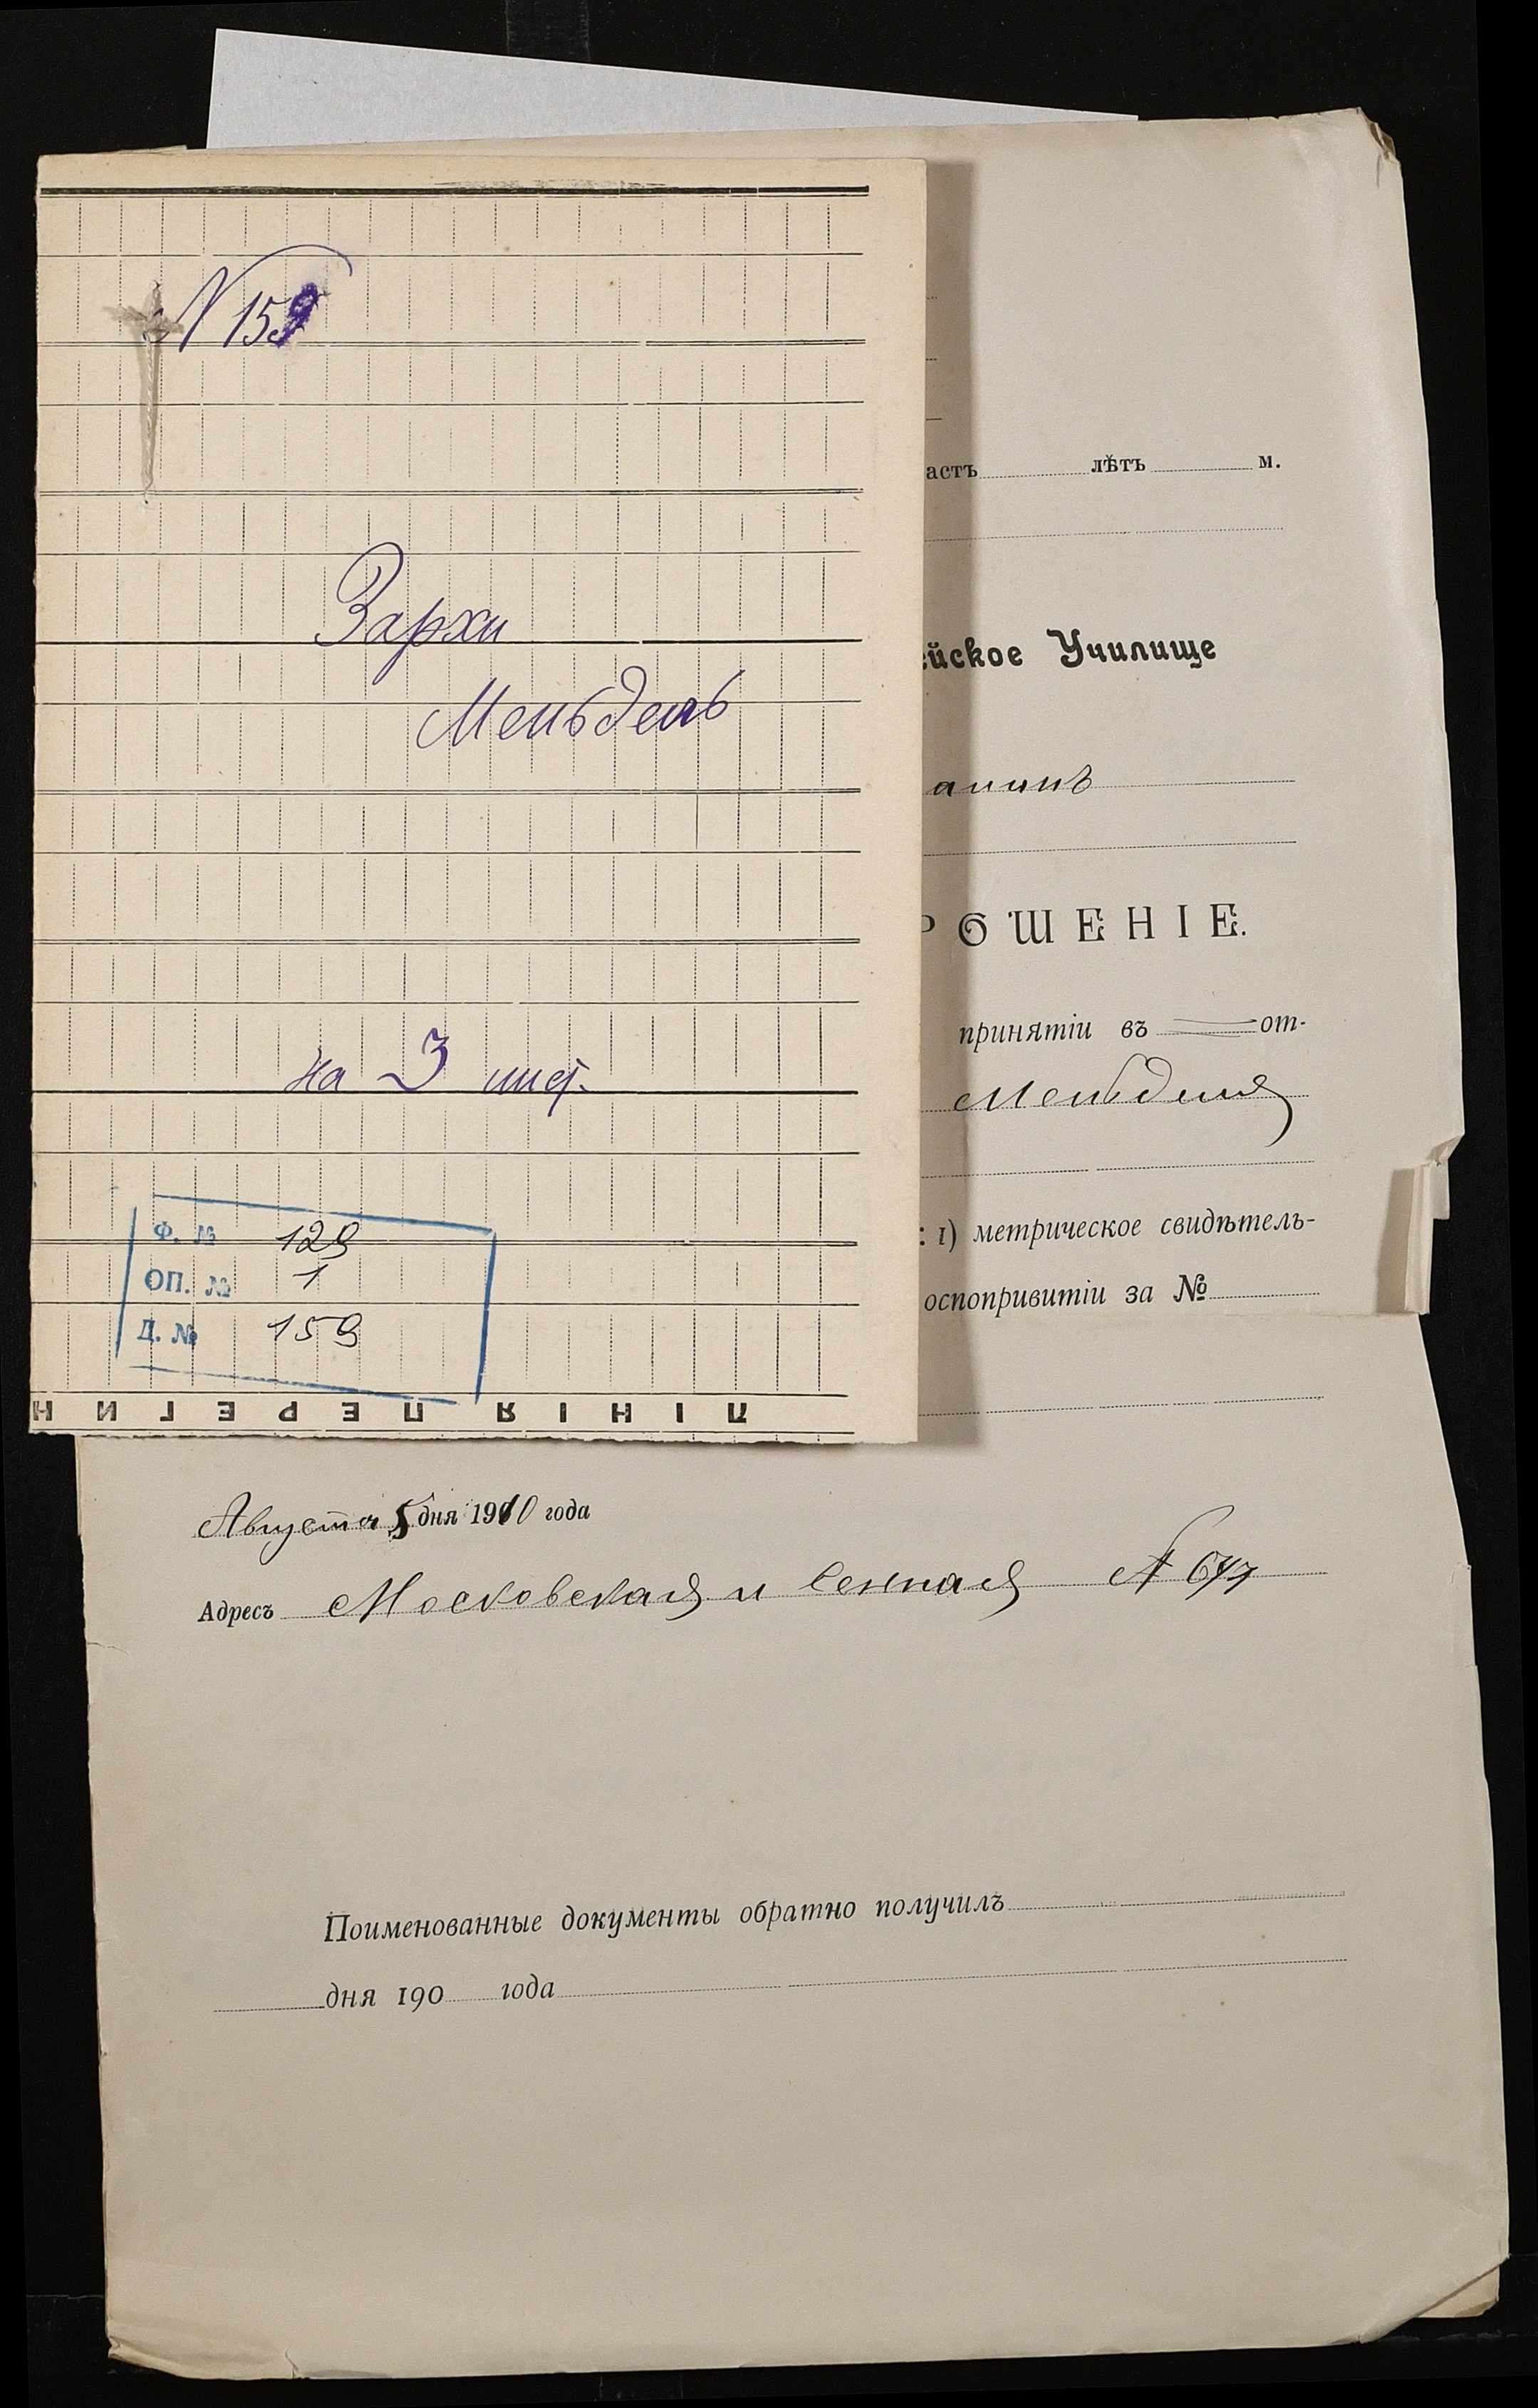 № 159
Зархи
Мендель
на 3 лист.
Ф. № 129
ОП. № 1
Д. № 159
ЛІНІЯ ПЕРЕГИН
астъ лѣтъ м.
ейское Училище
анинъ
РОШЕНІЕ.
принятіи въ от-
Менделя
: 1) метрическое свидѣтель-
оспопривитіи за №
Августа 5 дня 1910 года
Адресъ Московская и Сенная №
Поименованные документы обратно получилъ
дня 190 года